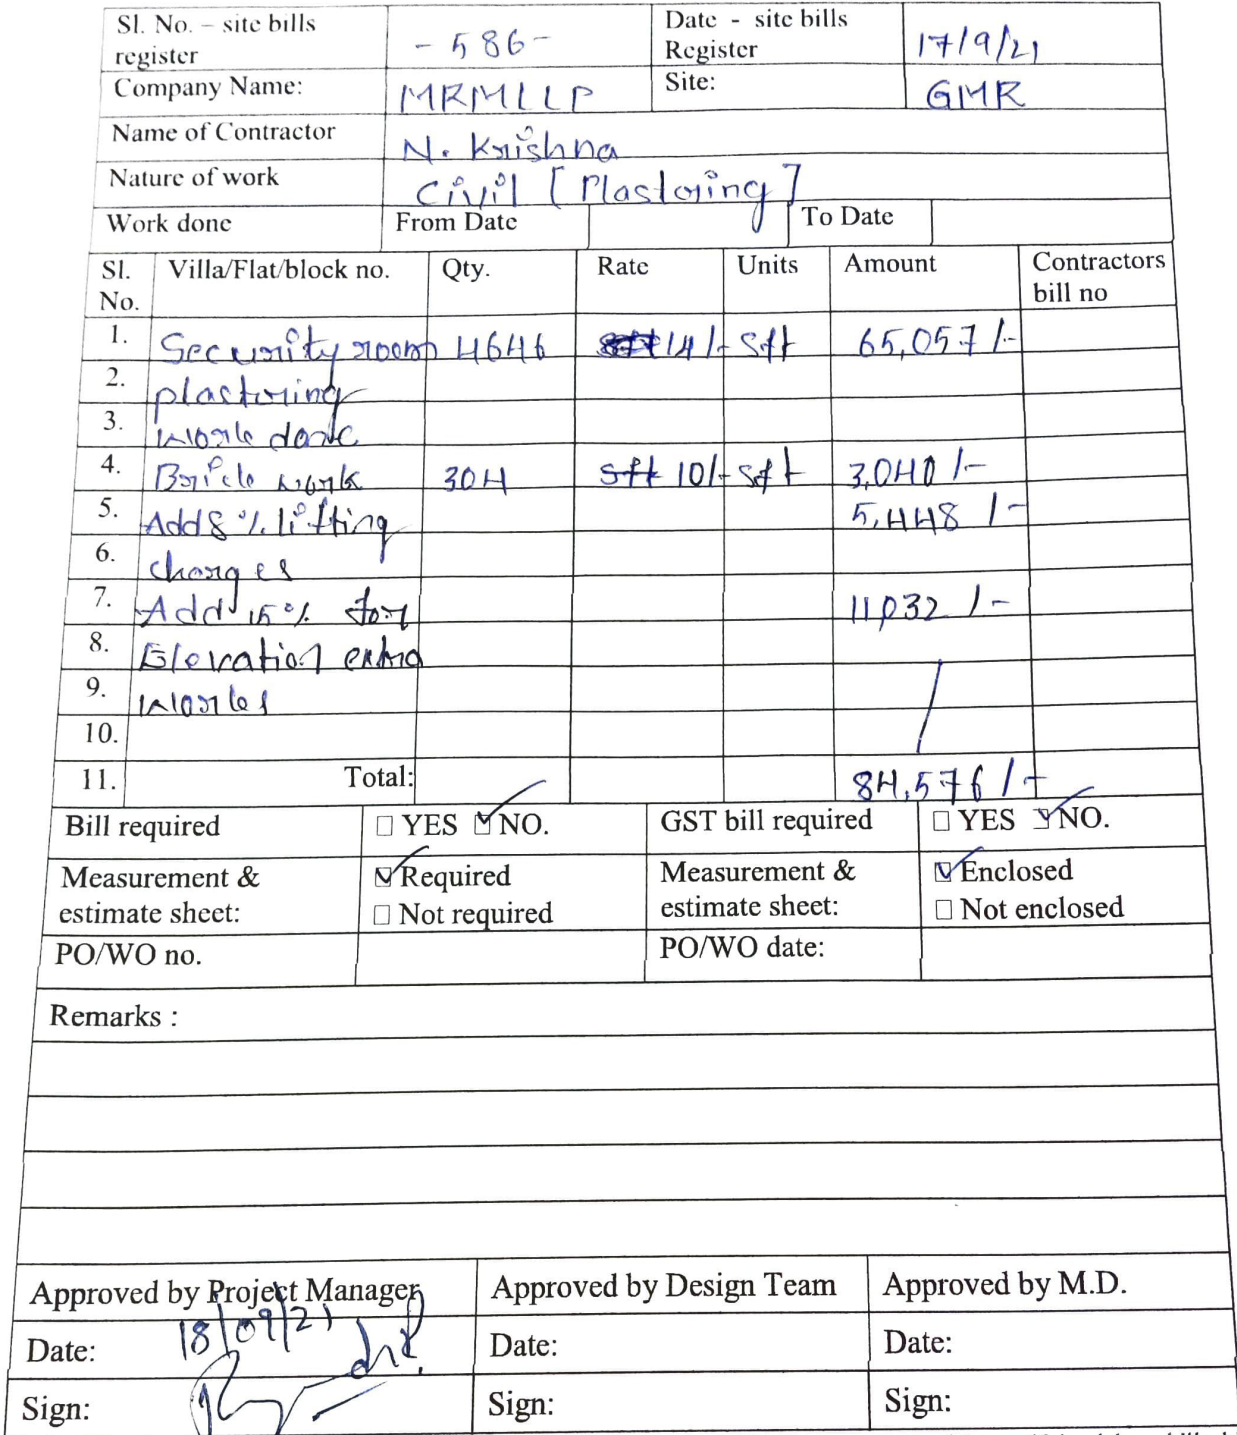 Sl. No. – site bills register - 586 - Date - site bills Register 17/9/21
Company Name: MRMLLP Site: GMR
Name of Contractor N. Krishna
Nature of work Civil [Plastoring]
Work done From Date To Date
Sl. No. Villa/Flat/block no. Qty. Rate Units Amount Contractors bill no
1. Security room 4646 14/- sft 65,057/-
2. plastoring
3. work done
4. Brick work 304 sft 10/- sft 3,040/-
5. Add 8% lifting 5,448/-
6. charges
7. Add 15% for 11,032/-
8. Elevation extra
9. works
10.
11. Total: 84,576/-
Bill required YES NO. GST bill required YES NO.
Measurement & estimate sheet: Required Not required Measurement & estimate sheet: Enclosed Not enclosed
PO/WO no. PO/WO date:
Remarks :
Approved by Project Manager Approved by Design Team Approved by M.D.
Date: 18/09/21 Date: Date:
Sign: Sign: Sign: